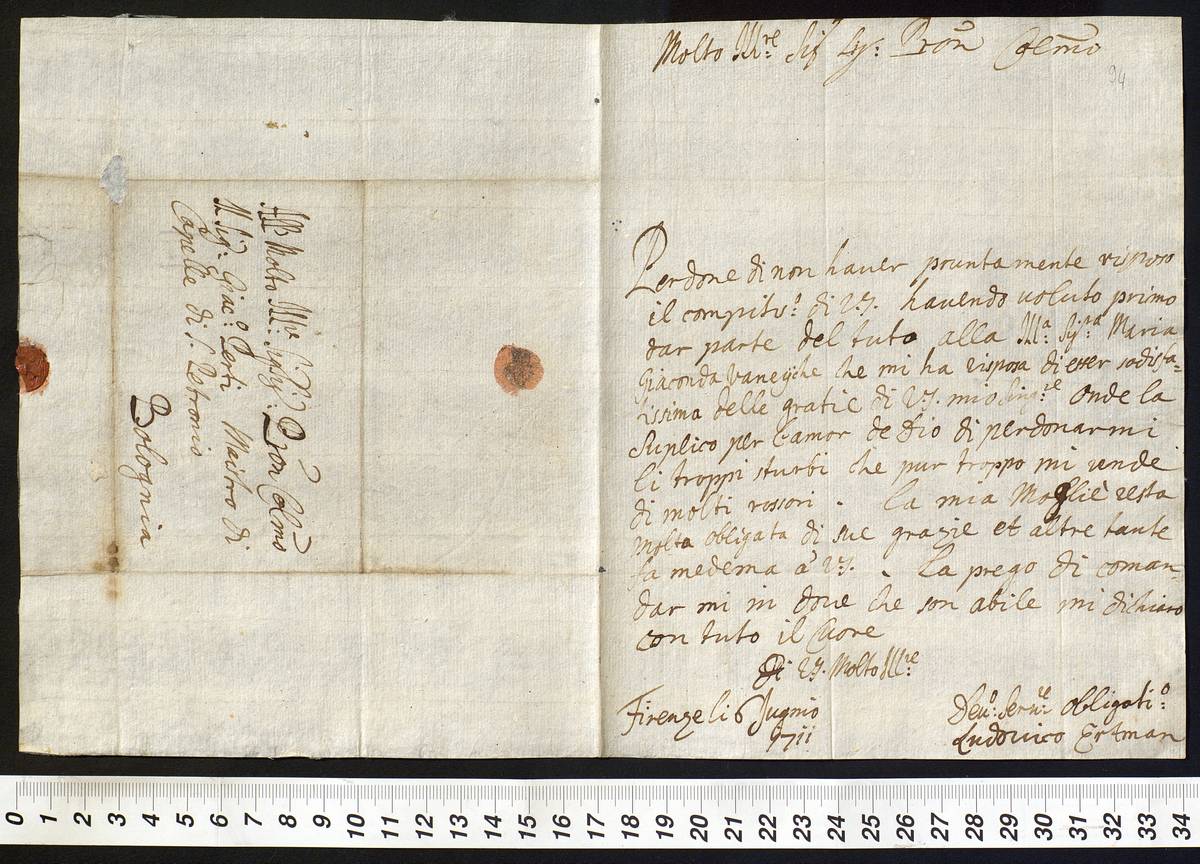 Molto Ill:re Sigr Sig: Pron Colmo
94
Perdone di non haver prontamente risposo
il compitis:o di V.S. havendo voluto primo
dar parte del tuto alla Ill:a Sig:ra Maria
Giaconda Vaneyche che mi ha risposa di esser sodisfa=
tissima delle gratie di V.S. mio Sing:re Onde la
Suplico per l'amor de Dio di perdonarmi
li troppi sturbi che pur troppo mi rende
di molti rossori. La mia Moglie resta
Molta obligata di sue grazie et altre tante
fa medema à V.S. La prego di coman=
dar mi in dove che son abile mi dichiaro
con tuto il Cuore
Di V.S. Molto Ill:re
Firenze li 6 Jugnio
1711
Dev:o Serv:re obligati:o
Ludovico Ertman
All Molto Ill:re Sigr Sig: Pron Colmo
Il Sig: Giac:o Perti Maistro di
Capelle di S. Petronio
Bolognia
0 1 2 3 4 5 6 7 8 9 10 11 12 13 14 15 16 17 18 19 20 21 22 23 24 25 26 27 28 29 30 31 32 33 34